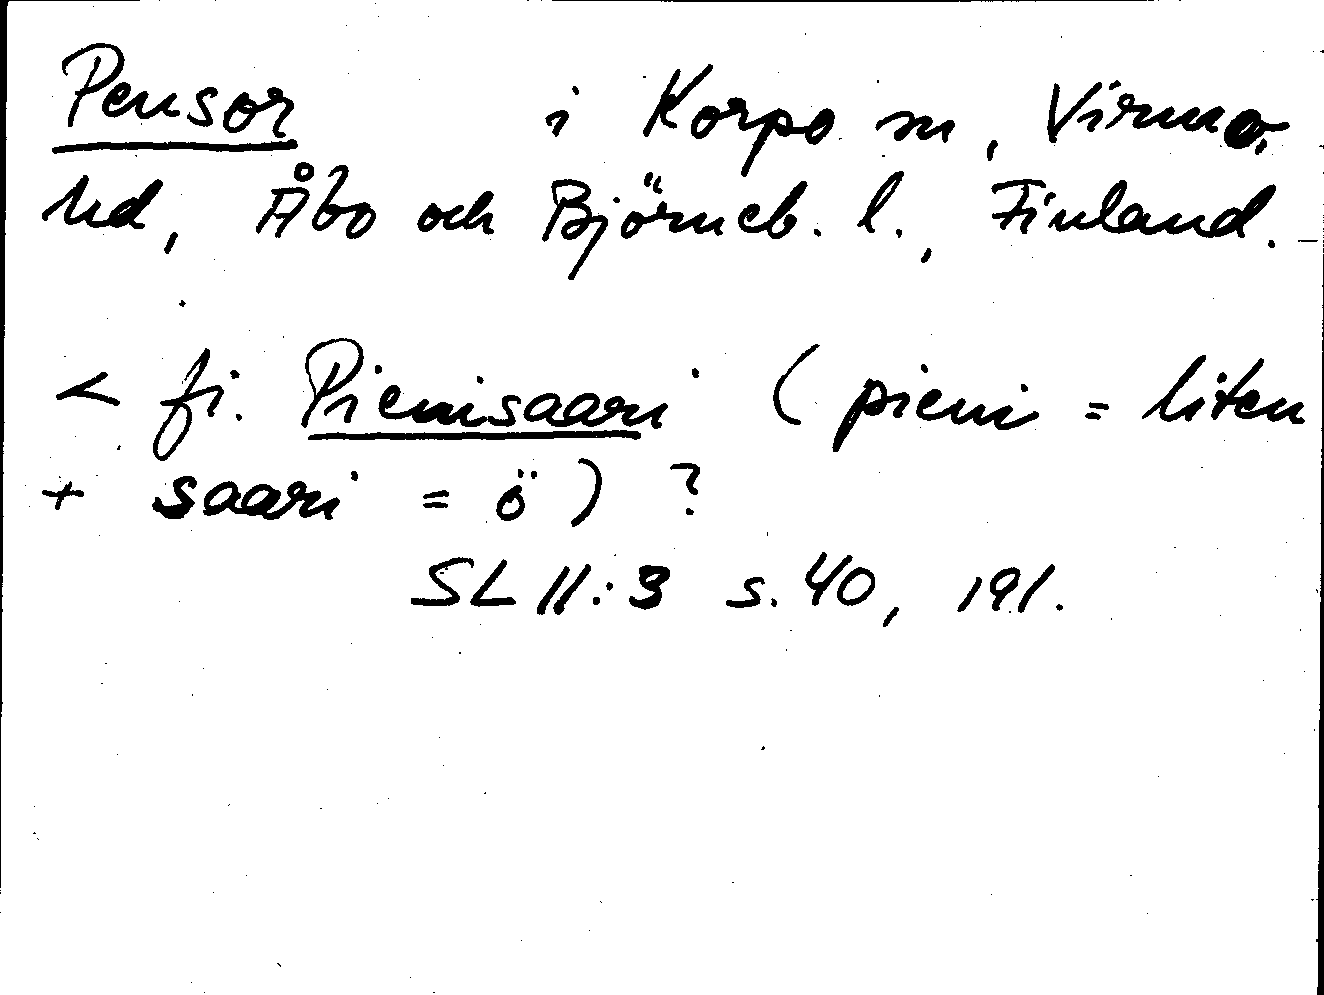 Pensor i Korpo sn, Virmo
hd, Åbo och Björneb. l., Finland.
< fi. Pienisaari (pieni = liten
+ saari = ö) ?
SL II:3 s. 40, 191.